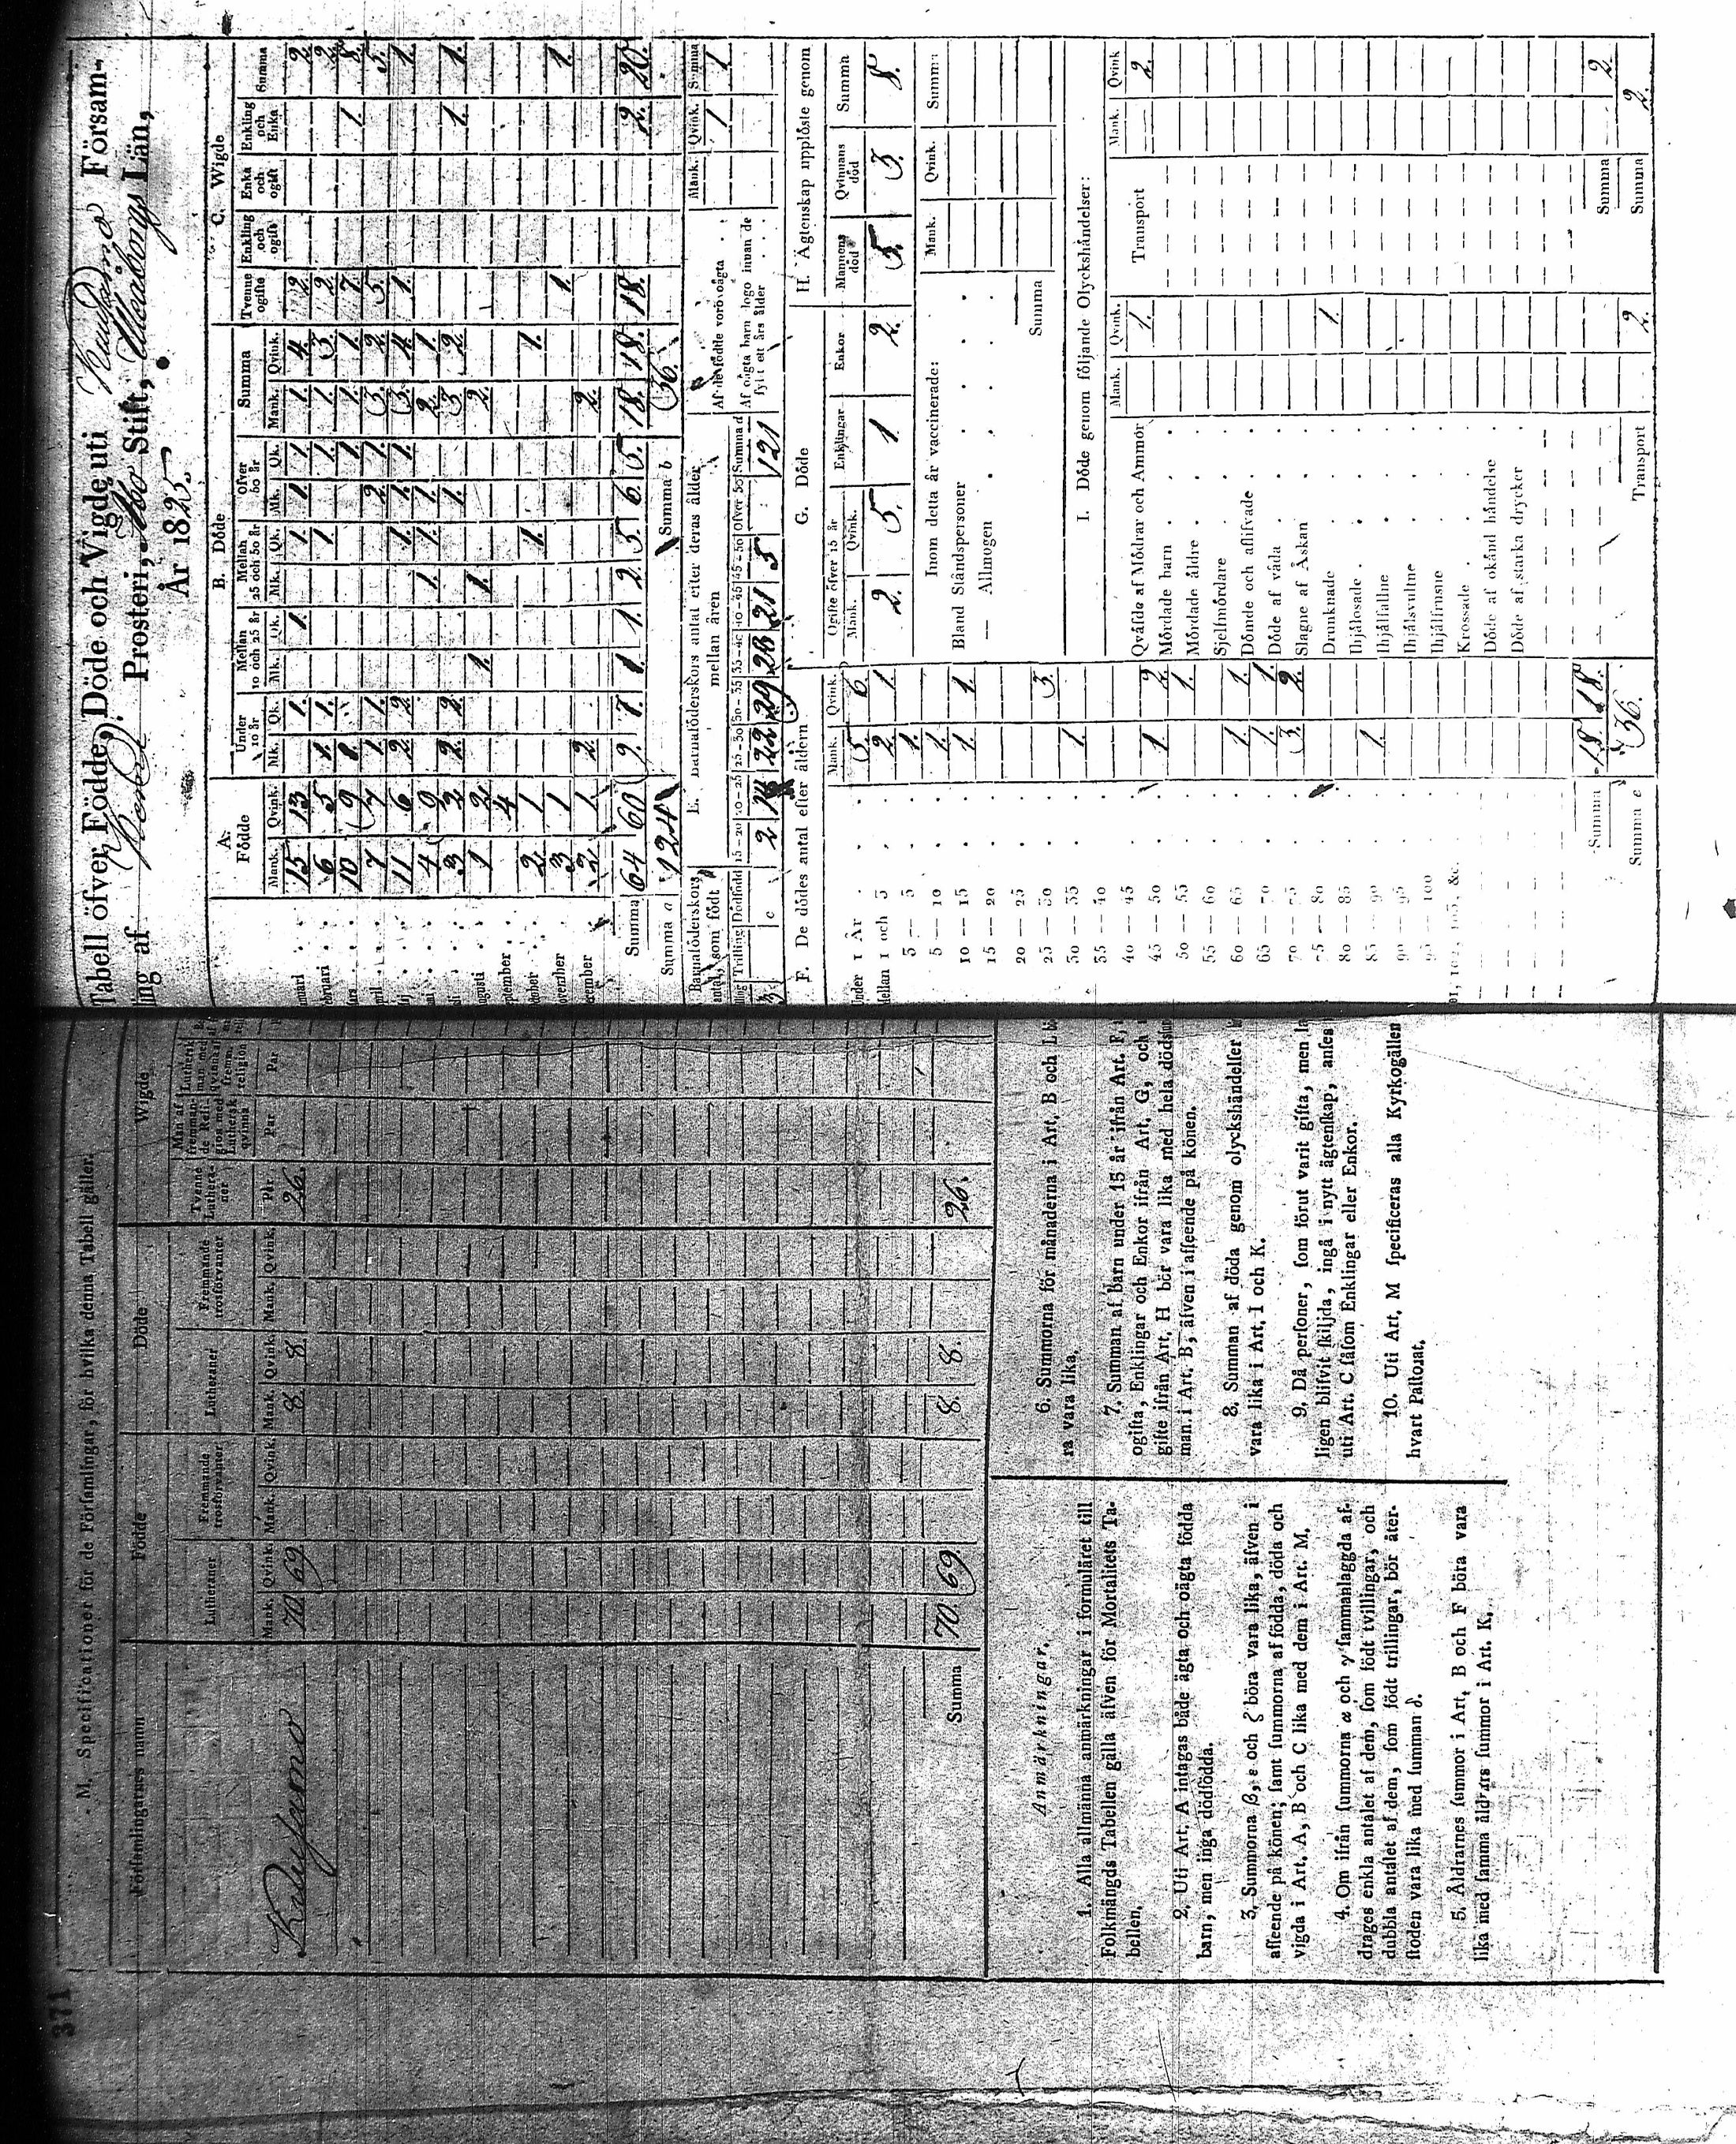 371
M. Specificationer för de Församlingar, för hvilka denna Tabell gäller.
Församlingarnes namn Födde Döde Wigde
Lutheraner Fremmande trosförvanter Lutheraner Fremmande trosförvanter Tvenne Lutheraner Man af fremmande Religion med Luthersk qvinna
Mank. Qvink. Mank. Qvink. Mank. Qvink. Mank. Qvink. Par. Par Par
Kuusamo 70 69 8 8. 26.
Summa 70. 69 8. 8. 26.
Anmärkningar.
1. Alla allmänna anmärkningar i formuläret till
Folkmängds Tabellen gälla äfven för Mortalitets Ta-
bellen.
2. Uti Art. A intagas både ägta och oägta födda
barn, men inga dödfödda.
3. Summorna β, ε och ζ böra vara lika, äfven i
afseende på könen; samt summorna af födda, döda och
vigda i Art. A, B och C lika med dem i Art. M.
4. Om ifrån summorna α och γ sammanlaggda af-
drages enkla antalet af dem, som födt tvillingar, och
dubbla antalet af dem, som födt trillingar, bör åter-
stoden vara lika med summan δ.
5. Åldrarnes summor i Art. B och F böra vara
lika med samma åldrars summor i Art. K.
6. Summorna för månaderna i Art. B och L bö
ra vara lika.
7. Summan af barn under 15 år ifrån Art. F,
ogifta, Enklingar och Enkor ifrån Art. G, och
gifte ifrån Art. H bör vara lika med hela döds
man i Art. B, äfven i afseende på könen.
8. Summan af döda genom olyckshändelser
vara lika i Art. I och K.
9. Då personer, som förut varit gifta, men
ligen blifvit skiljda, ingå i nytt ägtenskap, anses
uti Art. C såsom Enklingar eller Enkor.
10. Uti Art. M specificeras alla Kyrkogällen
hvart Pastorat.
Tabell öfver Födde, Döde och Vigde uti Kuusamo Försam-
ling af Kemi Prosteri, Åbo Stift, Uleåborgs Län,
År 1825
A. Födde B. Döde C. Wigde
Under 10 år Mellan 10 och 25 år Mellan 25 och 50 år Ofver 50 år Summa Tvenne ogifte Enkling och ogift Enka och ogift Enkling och Enka Summa
Mank. Qvink. Mk. Qk. Mk. Qk. Mk. Qk. Mk. Qk. Mank. Qvink.
nuari 15 13 1. 1. 1. 1. 1. 1. 4. 2. 2.
ebruari 6 5 1. 1. 1. 1. 1. 3. 2. 2.
10 9 1. 1. 1. 7. 1. 8.
pril 7 7 1. 1. 2. 1. 3. 2. 5. 5.
aj 11 6 2. 2. 1. 1. 1. 3. 4. 1. 1.
4 9 1. 1. 1. 2. 1.
3 3 2. 2. 1. 3. 2. 1. 1.
ugusti 1 2 1. 1. 2.
ptember 4
ktober 2 1 1. 1.
ovember 3 1 1. 1.
ecember 2 1 2. 2.
Summa 64 60 9. 7. 1. 1. 2. 5. 6. 5. 18. 18. 18. 2. 20.
Summa a 124 Summa b 36.
Barnaföderskors antal, som födt
E. Barnaföderskors antal efter deras ålder
mellan åren
Trilling Dödfödd 15 — 20 20 — 25 25 — 30 30 — 35 35 — 40 40 — 45 45 — 50 Ofver 50 Summa d
3. c 2 14 22 29 28 21 5 121
Mank. Qvink. Summa
Af de födde voro oägta 1 1
Af oägta barn dogo innan de
fyllt ett års ålder
F. De dödes antal efter åldern
Mank. Qvink.
Under 1 År 5. 6.
Mellan 1 och 3 2. 1.
3 — 5 1.
5 — 10 1. 1.
10 — 15 1.
15 — 20
20 — 25
25 — 30 3.
30 — 35 1.
35 — 40
40 — 45
45 — 50 1. 2.
50 — 55 1.
55 — 60
60 — 65 1. 1.
65 — 70 1. 1.
70 — 75 3. 2.
75 — 80
80 — 85 1.
85 — 90
90 — 95
95 — 100
101, 102, 103, &c.
Summa 18. 18.
Summa e 36.
G. Döde
Ogifte öfver 15 år Enklingar Enkor
Mank. Qvink.
2. 5. 1 2.
H. Ägtenskap upplöste genom
Mannens död Qvinnans död Summa
5. 3. 8.
Inom detta år vaccinerade: Mank. Qvink. Summa
Bland Ståndspersoner
— Allmogen
Summa
I. Döde genom följande Olyckshändelser:
Mank. Qvink. Mank. Qvink.
Qväfde af Mödrar och Ammor 1. Transport 2.
Mördade barn
Mördade äldre
Sjelfmördare
Dömde och aflifvade
Döde af våda
Slagne af Åskan
Drunknade 1.
Ihjälosade
Ihjälfallne
Ihjälsvultne
Ihjälfrusne
Krossade
Döde af okänd händelse
Döde af starka drycker
Transport 2.
Summa 2.
Summa 2.